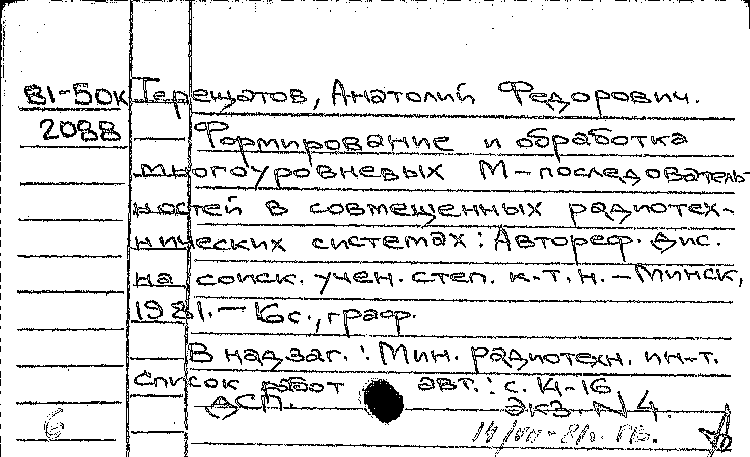 81-50К Терещатов, Анатолий Федорович.
2088 Формирование и обработка
многоуровневых М-последователь-
ностей в совмещенных радиотех-
нических системах: Автореф. дис.
на соиск. учен. степ. к.т.н. – Минск,
1981. – 16 с., граф.
В надзаг.: Мин. радиотехн. ин-т.
Список работ авт.: с. 14-16
ДСП. Экз. N4.
6